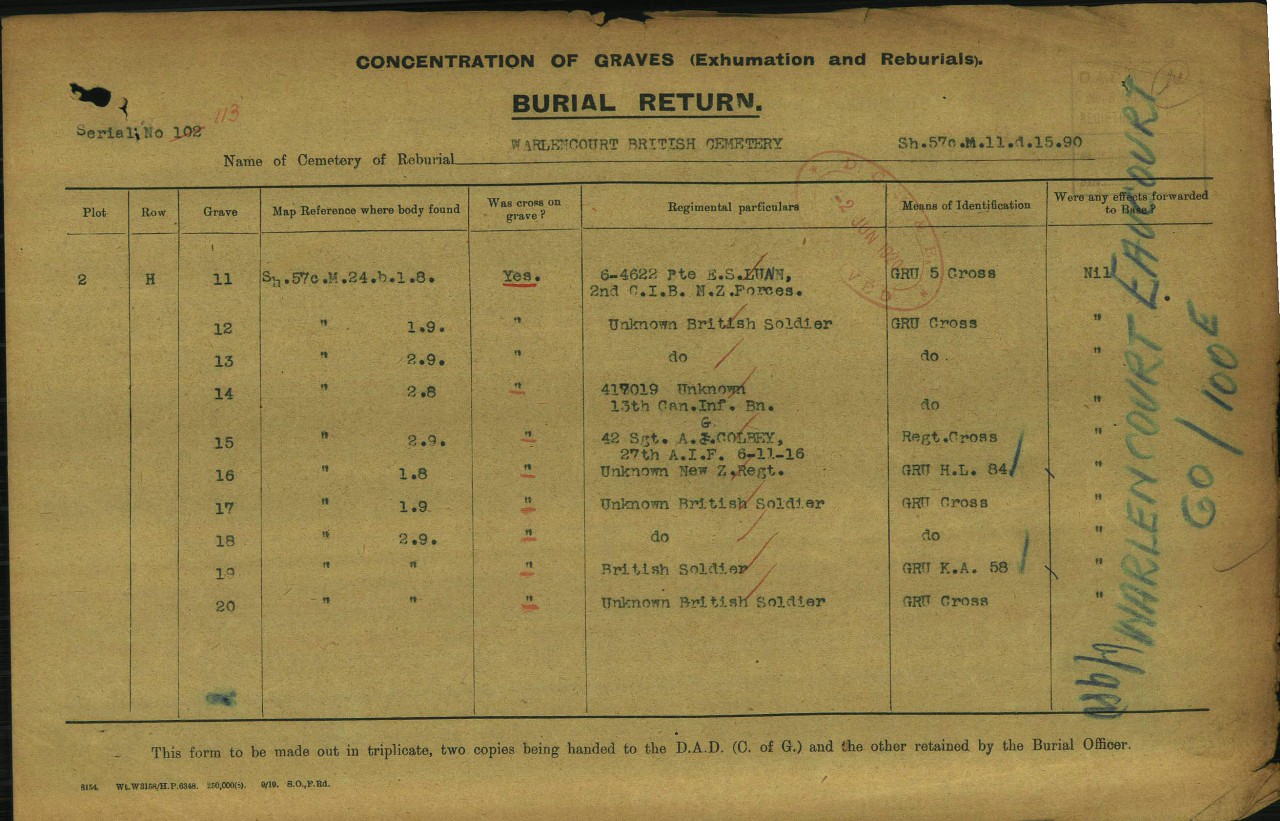 CONCENTRATION OF GRAVES (Exhumation and Reburials).
BURIAL RETURN.
113
Serial No 102
Name of Cemetery of Reburial WARLENCOURT BRITISH CEMETERY Sh.57c.M.11.d.15.90
Plot Row Grave Map Reference where body found Was cross on grave? Regimental particulars Means of Identification Were any effects forwarded to Base?
2 H 11 Sh.57c.M.24.b.1.8. Yes. 6-4622 Pte E.S.LUNN, GRU 5 Cross Nil
2nd C.I.B. N.Z.Forces.
12 " 1.9. " Unknown British Soldier GRU Cross "
13 " 2.9. " do do . "
14 " 2.8 " 417019 Unknown "
13th Can.Inf. Bn. do
G
15 " 2.9. " 42 Sgt. A. COLBEY, Regt.Cross "
27th A.I.F. 6-11-16
16 " 1.8 " Unknown New Z.Regt. GRU H.L. 84 "
17 " 1.9 " Unknown British Soldier GRU Cross "
18 " 2.9. " do do "
19 " " " British Soldier GRU K.A. 58 "
20 " " " Unknown British Soldier GRU Cross "
-2 JUN 1920
WARLENCOURT EAUCOURT
GO/100E
This form to be made out in triplicate, two copies being handed to the D.A.D. (C. of G.) and the other retained by the Burial Officer.
8154. Wt.W3158/H.P.6348. 250,000(5). 9/19. S.O.,F.Rd.